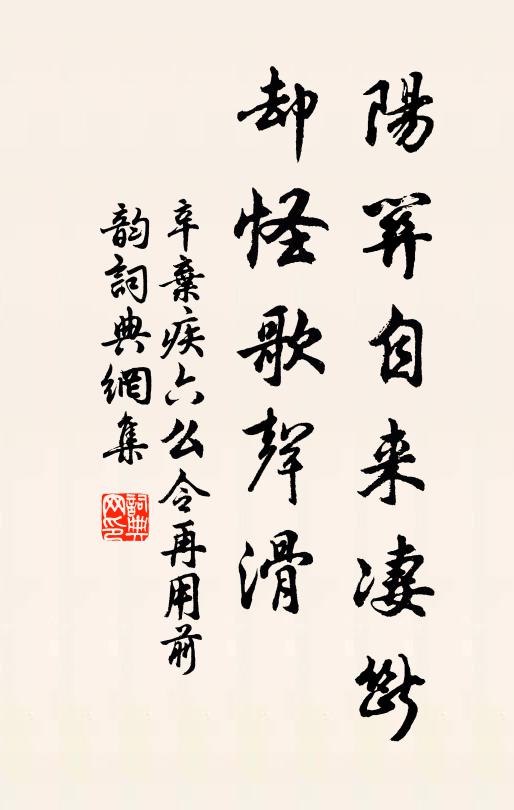 陽關自来凄斷
却怪歌聲滑
辛棄疾六么令再用前
韵詞典網集
詞典网印